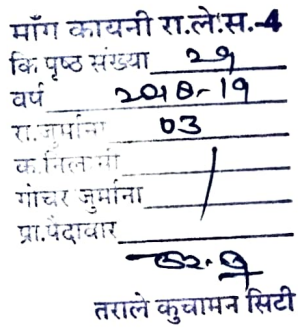 माँग कायनी रा.ले.स.-4
कि.पृष्ठ संख्या 29
वर्ष 2018-19
रा.जुर्माना 03
क.निलामी
गोचर जुर्माना
प्रा.पैदावार
तराले कुचामन सिटी